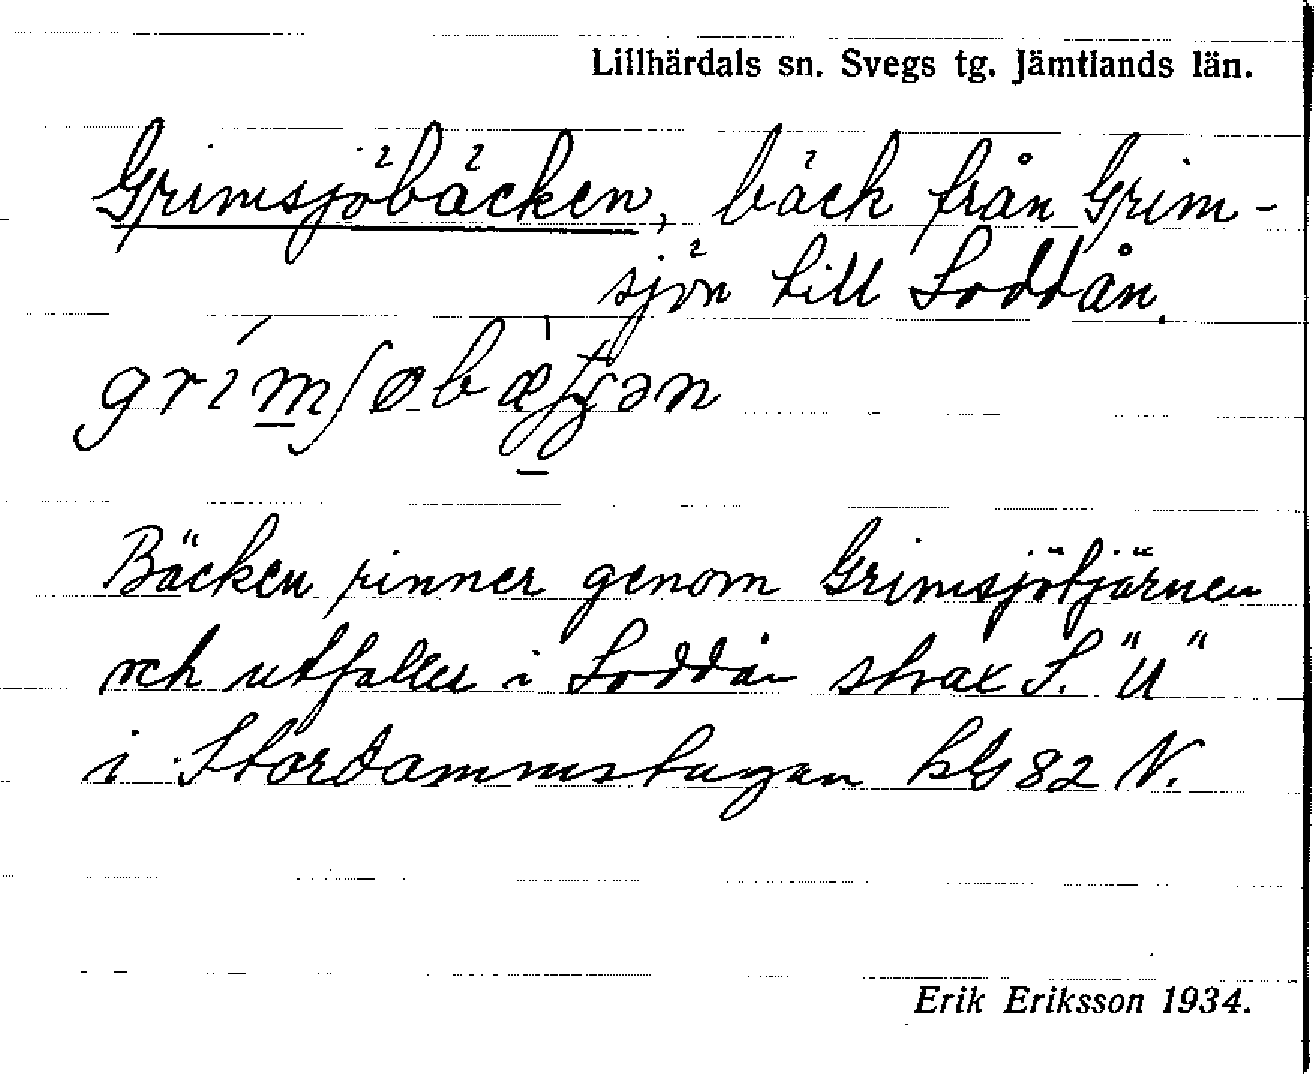 Lillhärdals sn. Svegs tg. Jämtlands län.
Grimsjöbäcken, bäck från Grim-
sjön till Loddån.
Bäcken rinner genom Grimsjötjärnen
och utfaller i Loddån strax S. "u"
i Stordammstugan kbl 82 N.
Erik Eriksson 1934.